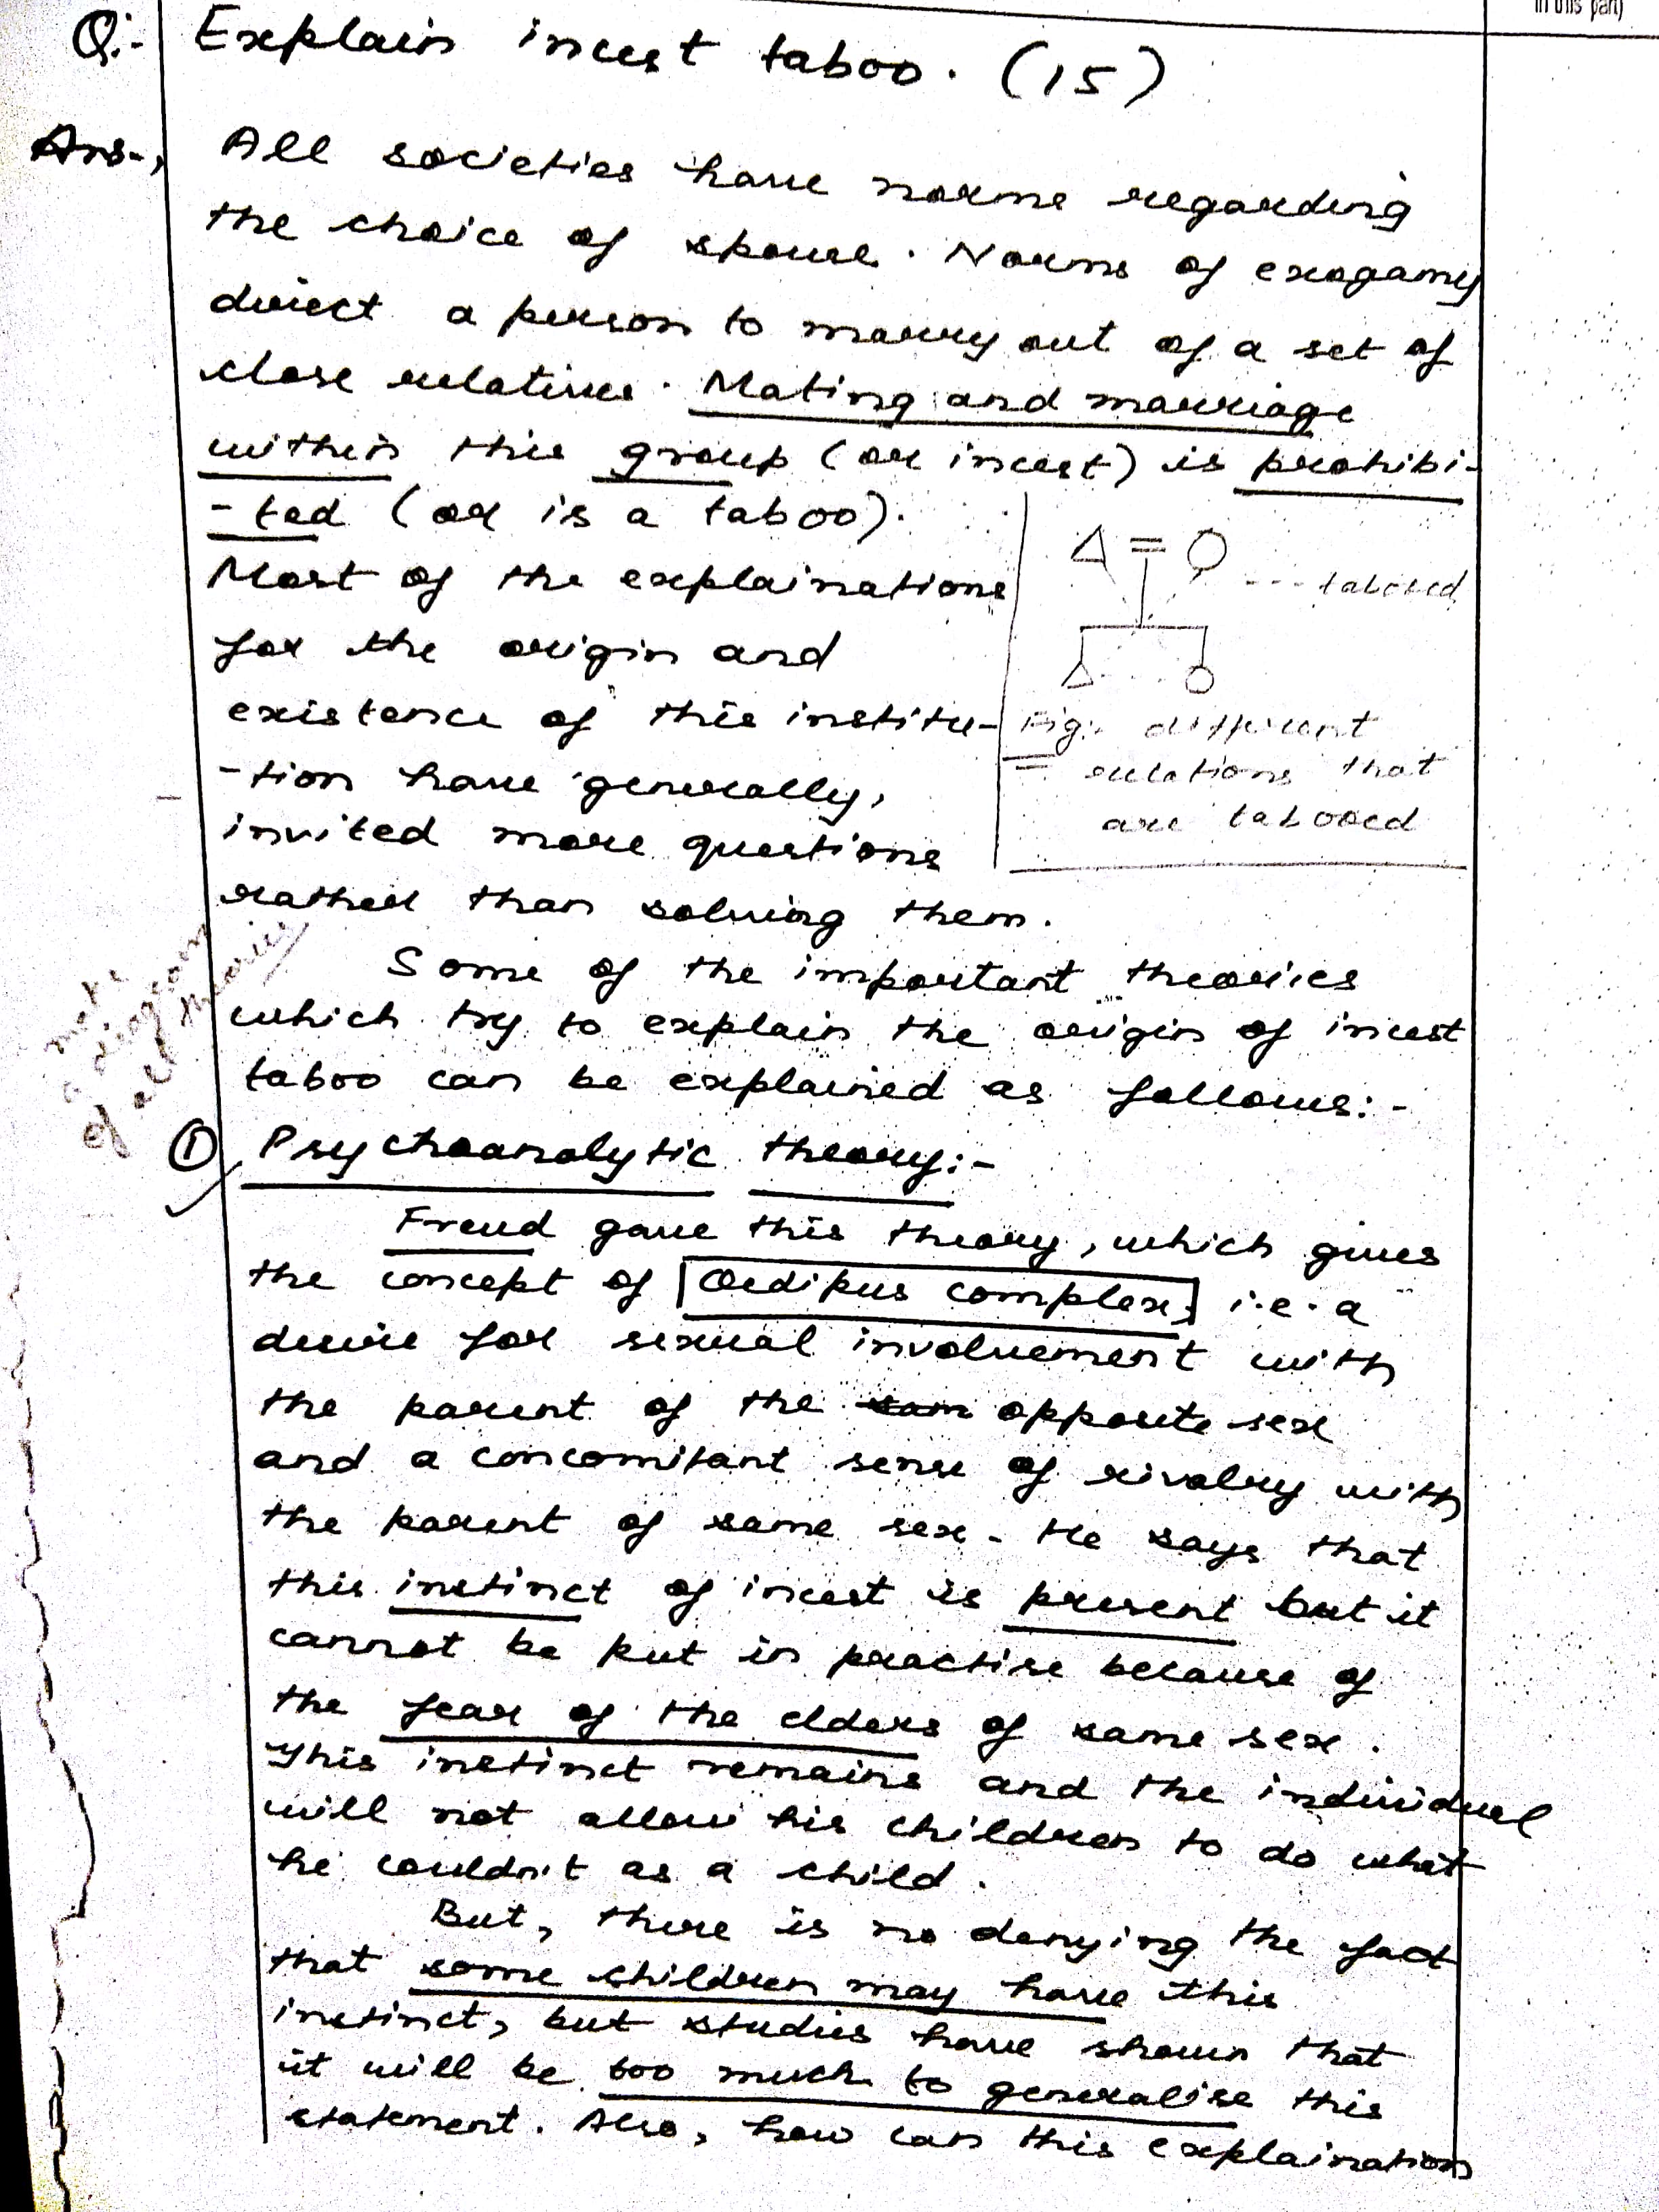 in this part)
Q:- Explain incest taboo. (15)
Ans-, All societies have norms regarding
the choice of spouse. Norms of exogamy
direct a person to marry out of a set of
close relatives. Mating and marriage
within this group (or incest) is prohibi-
-ted (or is a taboo).
Most of the explainations
for the origin and
existence of this institu-
-tion have generally,
invited more questions
rather than solving them.
--- tabooed
Fig:- different
relations that
are tabooed
Some of the important theories
which try to explain the origin of incest
taboo can be explained as follows:-
make
a diagram
of all theories
① Psychoanalytic theory:-
Freud gave this theory, which gives
the concept of Oedipus complex, i.e. a
desire for sexual involvement with
the parent of the opposite sex
and a concomitant sense of rivalry with
the parent of same sex. He says that
this instinct of incest is present but it
cannot be put in practise because of
the fear of the elders of same sex.
This instinct remains and the individual
will not allow his children to do what
he couldn't as a child.
But, there is no denying the fact
that some children may have this
instinct, but studies have shown that
it will be too much to generalise this
statement. Also, how can this explaination